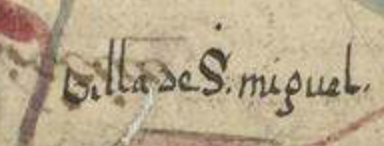 Villa de S. miguel.